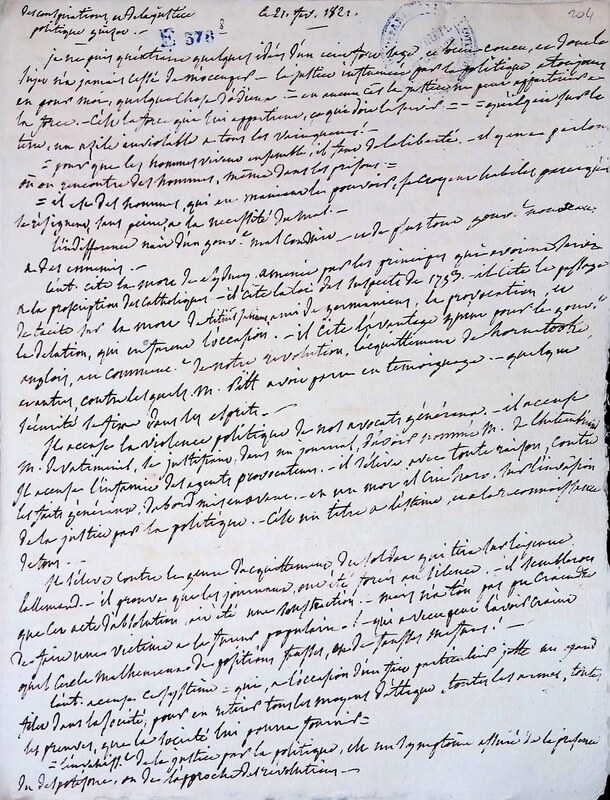 des conspirations et de la justice
politique guizot. — le 21. fev. 1821.
204
E 378 8
je ne puis qu'extraire quelques idées d'un excellent ouvrage
n'a jamais cessé de m'occuper — la justice instrument par la politique a toujours
eu pour moi, quelque chose d'odieux. = en aucun cas la justice ne peut appartenir à
la force. — C'est la force que lui appartient, ce qui doit la servir = = quelque sur la
terre, un asile inviolable à tous les vainqueurs! —
= pour que les hommes vivent ensemble, il faut de la liberté. — il y en a partout
où on rencontre des hommes, même dans les prisons =
= il est des hommes, qui en maniant le pouvoir, se croyent habiles parce qu'ils
se résignent, sans peine, à la nécessité du mal. —
l'indifférence nait d'un gouv.t mal conduit —
a des ennemis. —
l'aut. cite la mort de Sydney, amenée par les principes qui avoient servi
à la proscription des catholiques — il cite la loi des suspects de 1793. — il cite le passage
de tacite sur la mort de titius Sabinus, ami de germanicus, la provocation, et
la delation, qui en furent l'occasion. — il cite l'avantage pour le gouv.t
anglois, au commenc.t de notre revolution, l'acquittement de horne tooke
et autres, contre lesquels M. Pitt avoit paru en temoignage. — quelque
sécurité dans les esprits. —
Il accuse la violence politique de nos avocats généraux. — il accuse
M. de vatimenil, se justifiant, dans un journal, d'avoir nommé M. de
Il accuse l'infamie des agents provocateurs. — il s'élève avec toute raison, contre
les faits généraux, d'abord mis en avant. — en un mot il écrit sur l'invasion
de la justice par la politique. — C'est un titre à l'estime et à la reconnoissance
de tous. —
Il s'élève contre le genre d'acquittement du soldat qui tira sur le jeune
lallemand. — il prouve que les journaux, ont été forcés au silence. — il sembleroit
que cet acte d'absolution, ait été une soustraction. — mais n'a t'on pas pu craindre
de faire une victime à la fureur populaire! —
quel cercle malheureux de positions fausses, ou de fausses mesures! —
l'aut. accuse ce système = qui, à l'occasion d'un fait particulier jette un grand
filet dans la société, pour en retirer tous les moyens d'attaque, toutes les armes, toutes
les preuves, que la société lui pourra fournir =
= de la justice par la politique, est un symptôme assuré de la présence
du despotisme, ou de l'approche des révolutions. —